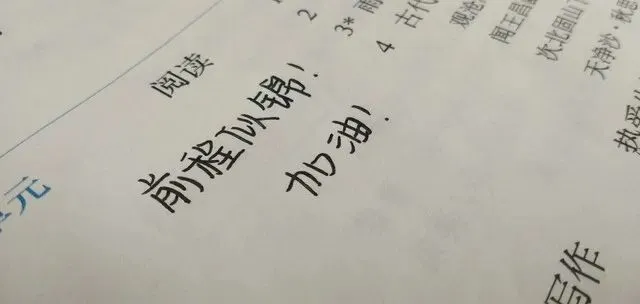 单元
阅读
2
3* 雨
4 古代
观沧
闻王昌
次北固山下
天净沙·秋思
前程似锦!
加油!
写作
热爱